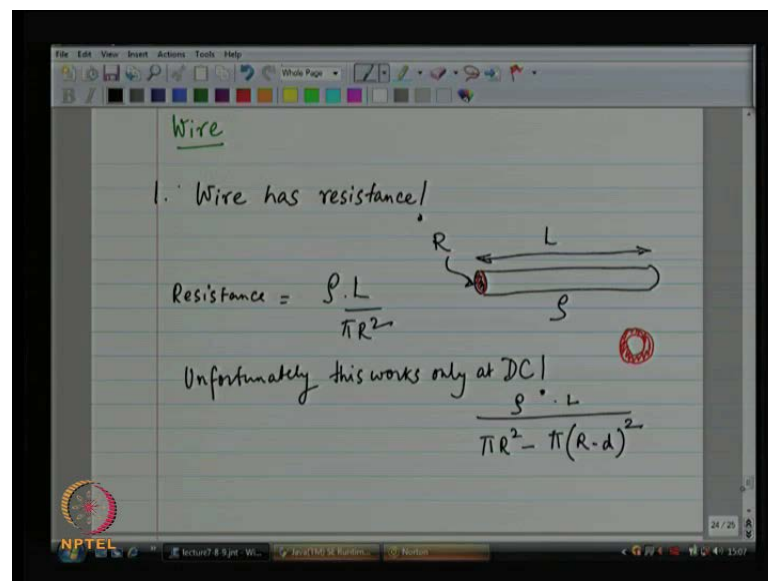 File Edit View Insert Actions Tools Help
Whole Page
B I
Wire
1. Wire has resistance!
R L
Resistance = ρ.L / πR²
ρ
Unfortunately this works only at DC!
ρ.L / πR² - π(R-d)²
24 / 25
NPTEL
lecture7-8-9.jnt - Wi... Java(TM) SE Runtim... Norton 15:07